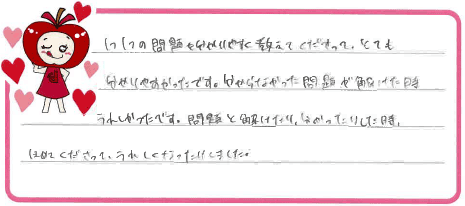 1つ1つの問題を分かりやすく教えてくださって、とても
分かりやすかったです。分からなかった問題が解けた時
うれしかったです。問題と解けたり、分かったりした時、
ほめてくださって、うれしくなったりしました。